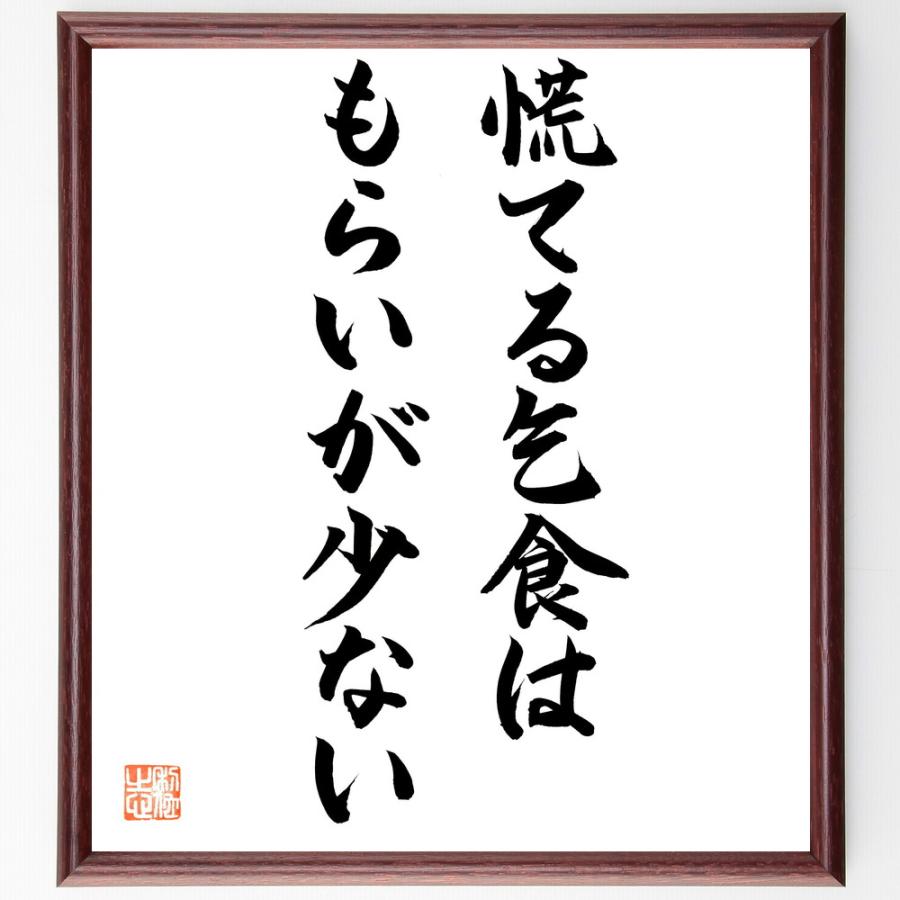 慌てる乞食は
もらいが少ない